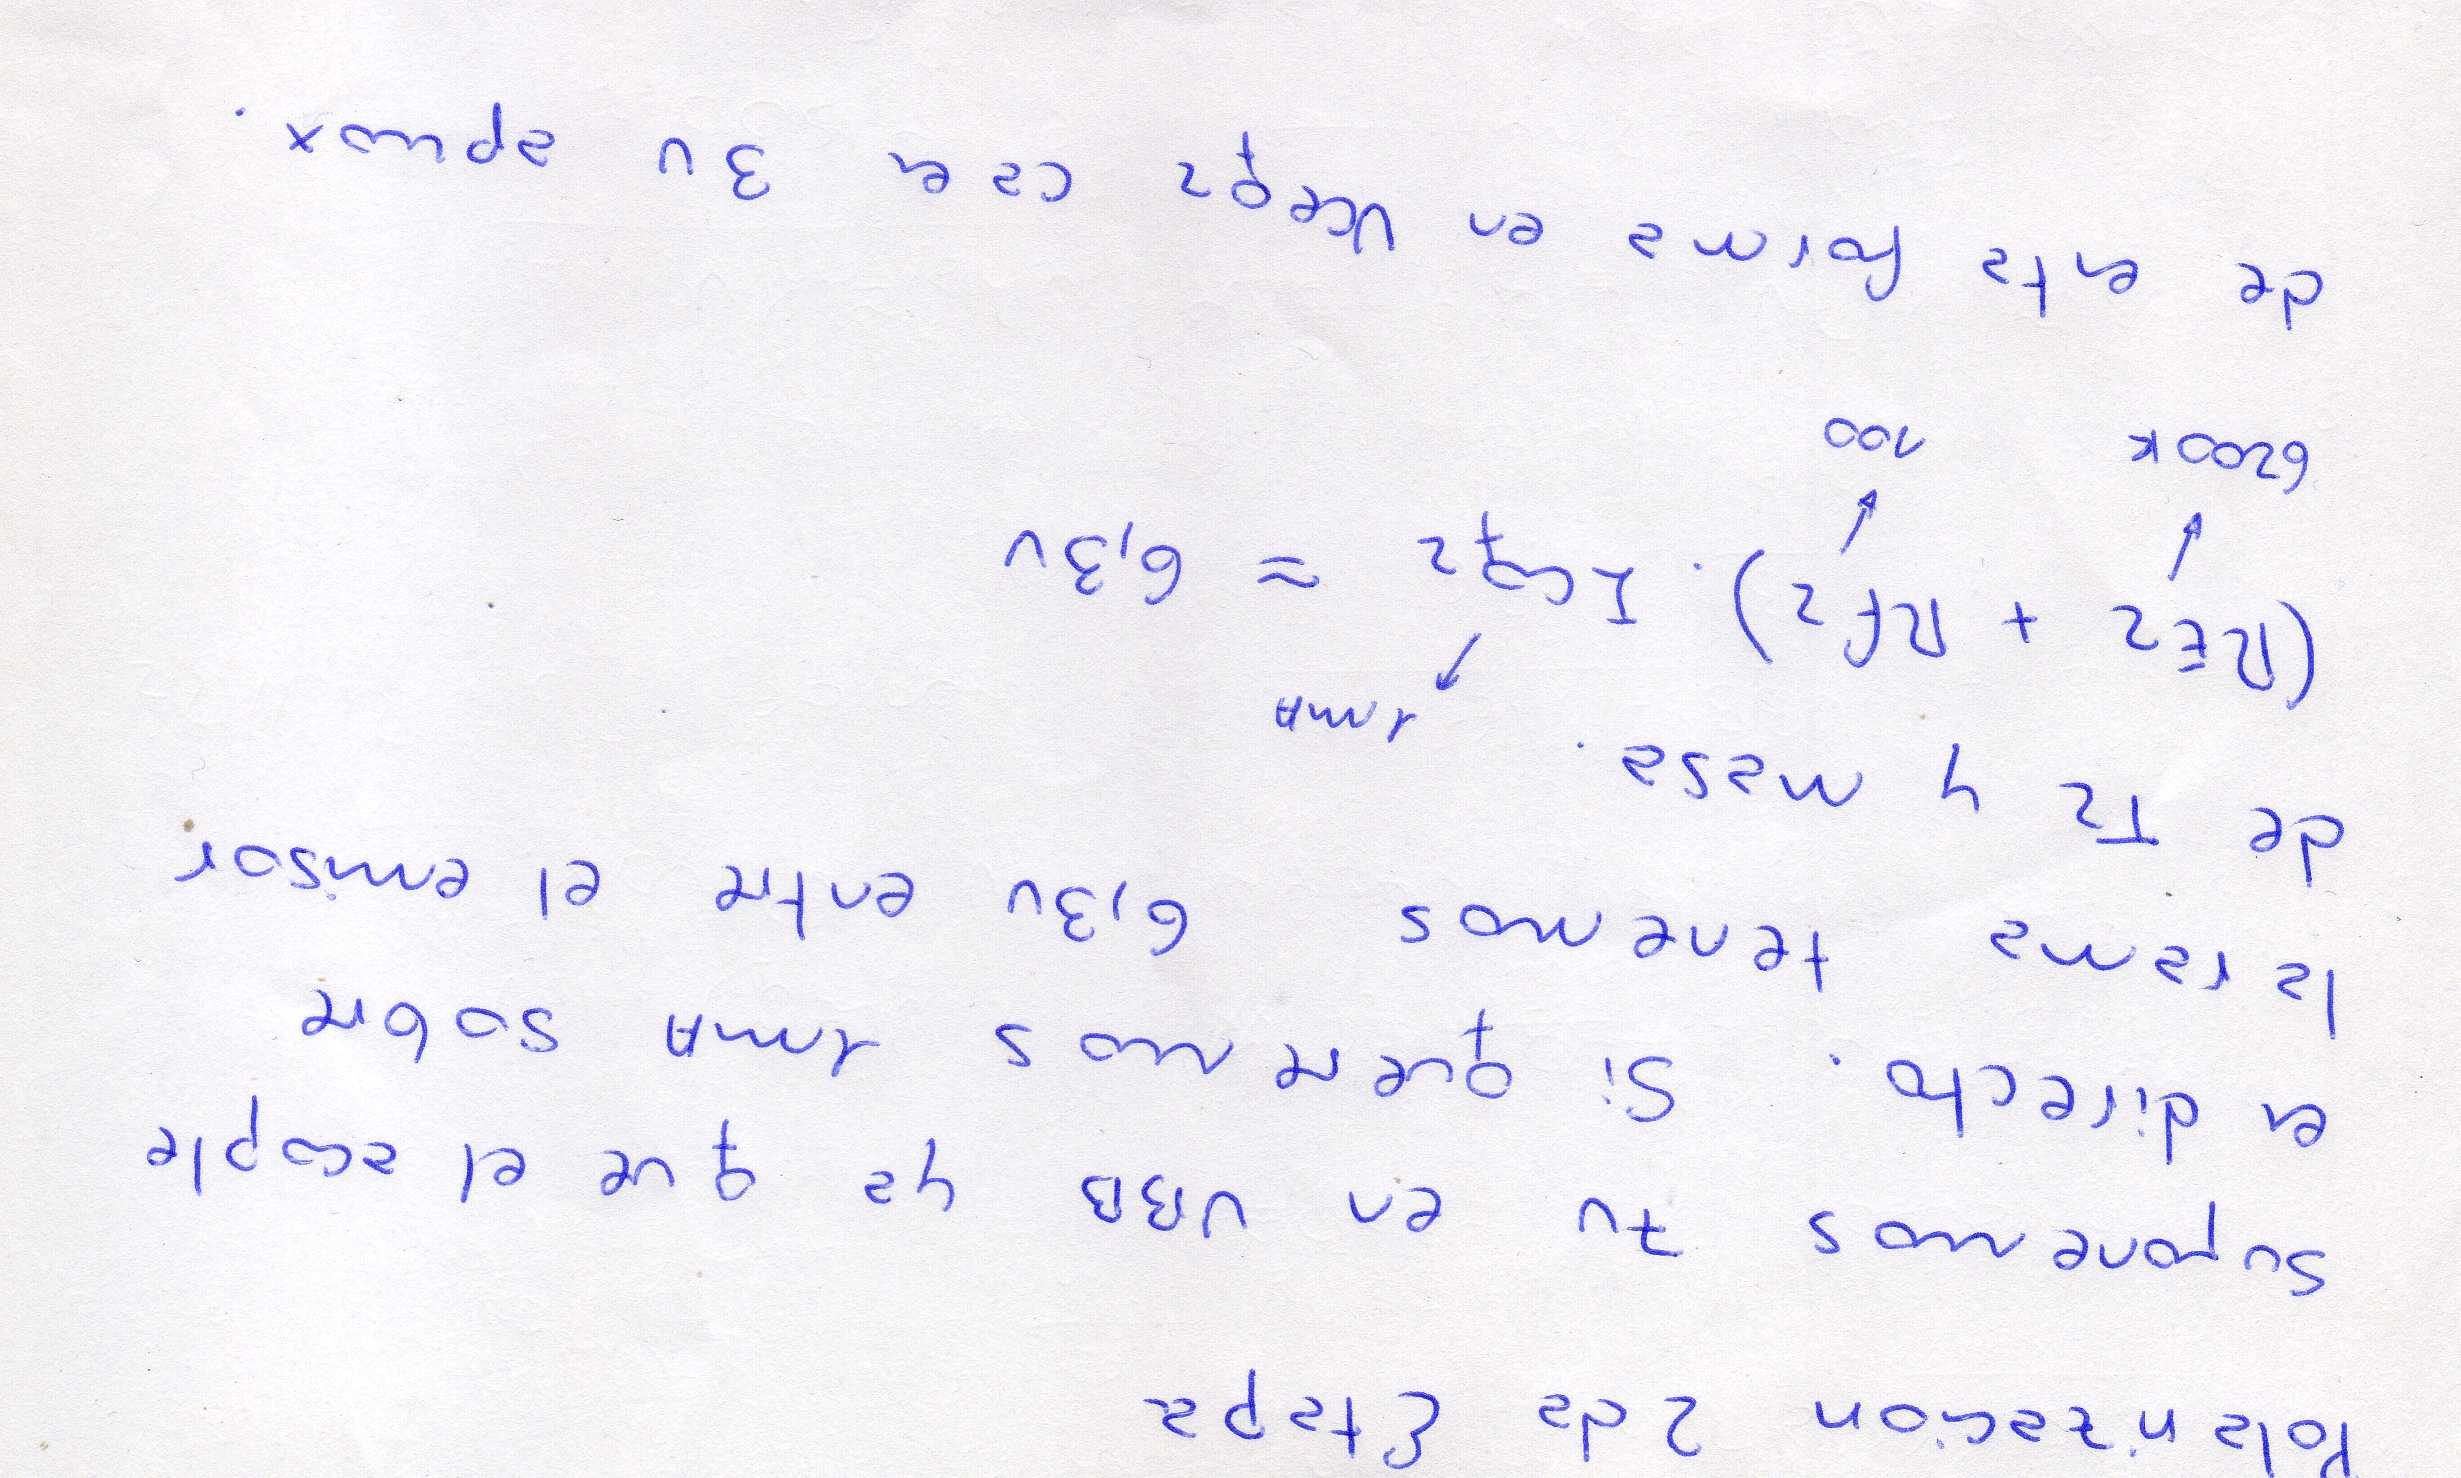 Polarizacion 2da Etapa
Suponemos 7V en VBB ya que el acople
es directo. Si queremos 1mA sobre
la rama tenemos 6,3V entre el emisor
de T2 y masa.
1mA
(RE2 + RF2). Icq2 ≈ 6,3V
6200K 100
de esta forma en Vceq2 caen 3V aprox.